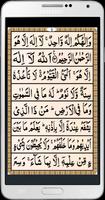 وَاِلٰهُكُمْ اِلٰهٌ وَّاحِدٌ لَآ اِلٰهَ اِلَّا هُوَ
الرَّحْمٰنُ الرَّحِيْمُ اَللّٰهُ لَآ اِلٰهَ اِلَّا
هُوَ اَلْحَيُّ الْقَيُّوْمُ لَا تَاْخُذُهٗ سِنَةٌ وَّلَا
نَوْمٌ لَهٗ مَا فِي السَّمٰوٰتِ
وَمَا فِي الْاَرْضِ مَنْ ذَا الَّذِيْ
يَشْفَعُ عِنْدَهٗٓ اِلَّا بِاِذْنِهٖ يَعْلَمُ مَا بَيْنَ
اَيْدِيْهِمْ وَمَا خَلْفَهُمْ وَلَا يُحِيْطُوْنَ بِشَيْءٍ
مِّنْ عِلْمِهٖٓ اِلَّا بِمَا شَآءَ وَسِعَ